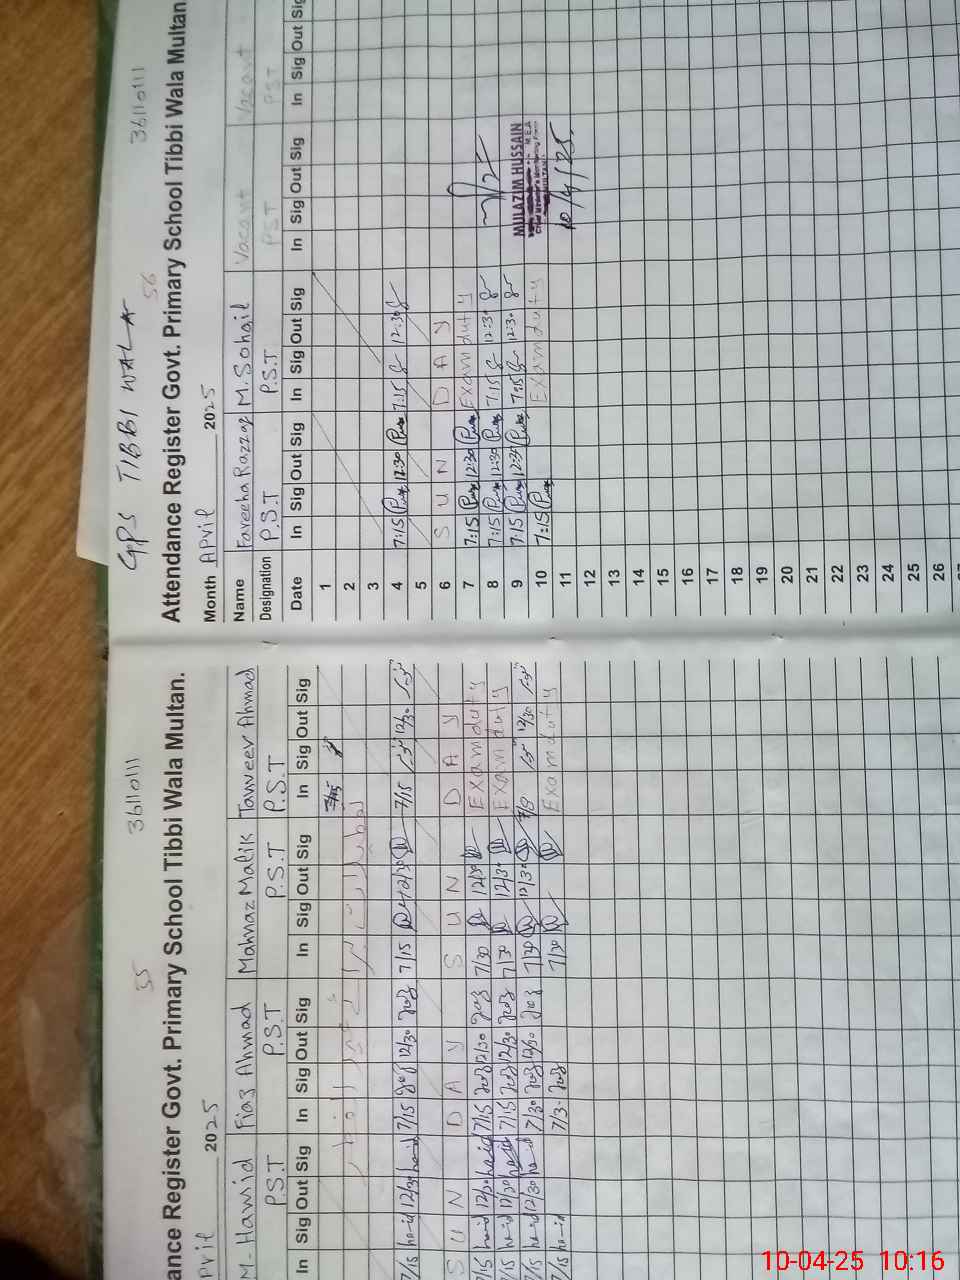 36110111
55
ance Register Govt. Primary School Tibbi Wala Multan.
pril 2025
M. Hamid Fiaz Ahmad Mahnaz Malik Tanveer Ahmad
P.S.T P.S.T P.S.T P.S.T
In Sig Out Sig In Sig Out Sig In Sig Out Sig In Sig Out Sig
7/15
7/15 12/30 7/15 12/30 7/15 12/30 7/15 12/30
S U N D A Y S U N D A Y
7/15 12/30 7/15 12/30 7/30 12/30 Exam duty
7/15 12/30 7/15 12/30 7/30 12/30 Exam duty
7/15 12/30 7/30 12/30 7/30 12/30 12/30
7/15 7/30 7/30 Exam duty
GPS TIBBI WALA 36110111
56
Attendance Register Govt. Primary School Tibbi Wala Multan
Month APril 2025
Name Fareeha Razzaq M. Sohail Vacant Vacant
Designation P.S.T P.S.T PST PST
Date In Sig Out Sig In Sig Out Sig In Sig Out Sig In Sig Out Sig
1
2
3
4 7:15 12:30 7:15 12:30
5
6 S U N D A Y
7 7:15 12:30 Exam duty
8 7:15 12:30 7:15 12:30
9 7:15 12:30 7:15 12:30
10 7:15 Exam duty
MULAZIM HUSSAIN
M.E.A
10/4/25
11
12
13
14
15
16
17
18
19
20
21
22
23
24
25
26
10-04-25 10:16